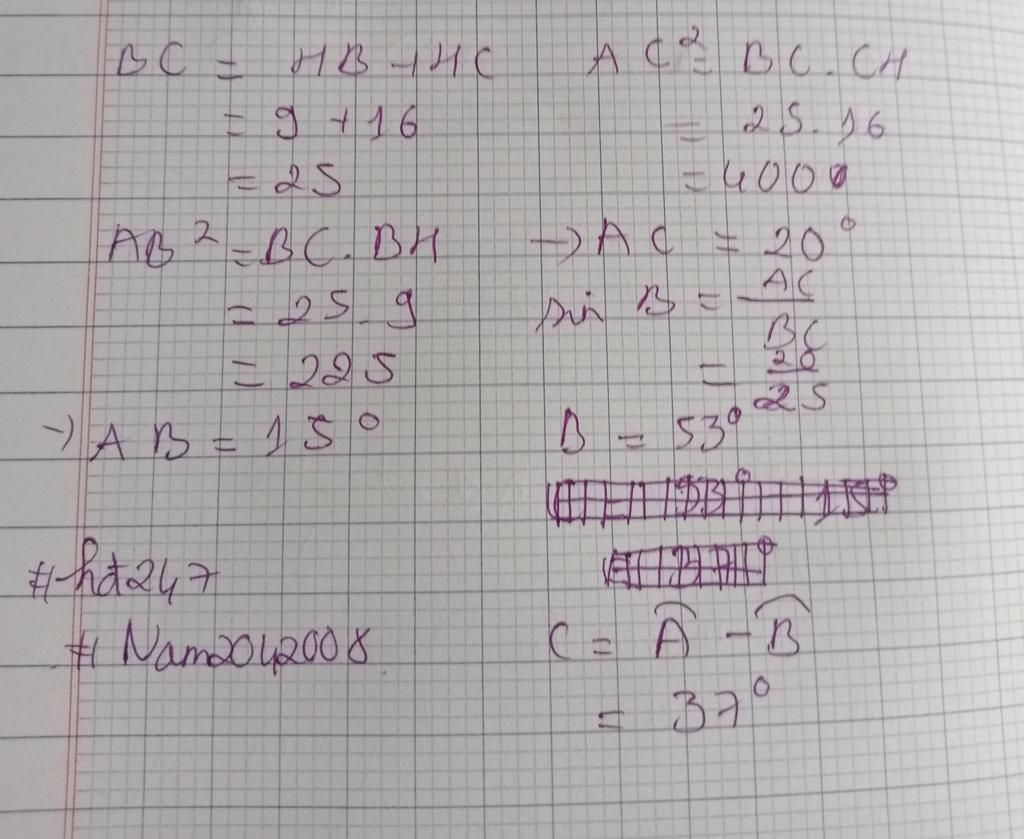 BC = HB + HC
= 9 + 16
= 25
AB² = BC . BH
= 25 . 9
= 225
→ AB = 15°
#hđ247
#Nam2042008
AC² = BC . CH
= 25 . 16
= 4000
→ AC = 20°
sin B = AC/BC
= 20/25
B = 53°
C = A - B
= 37°